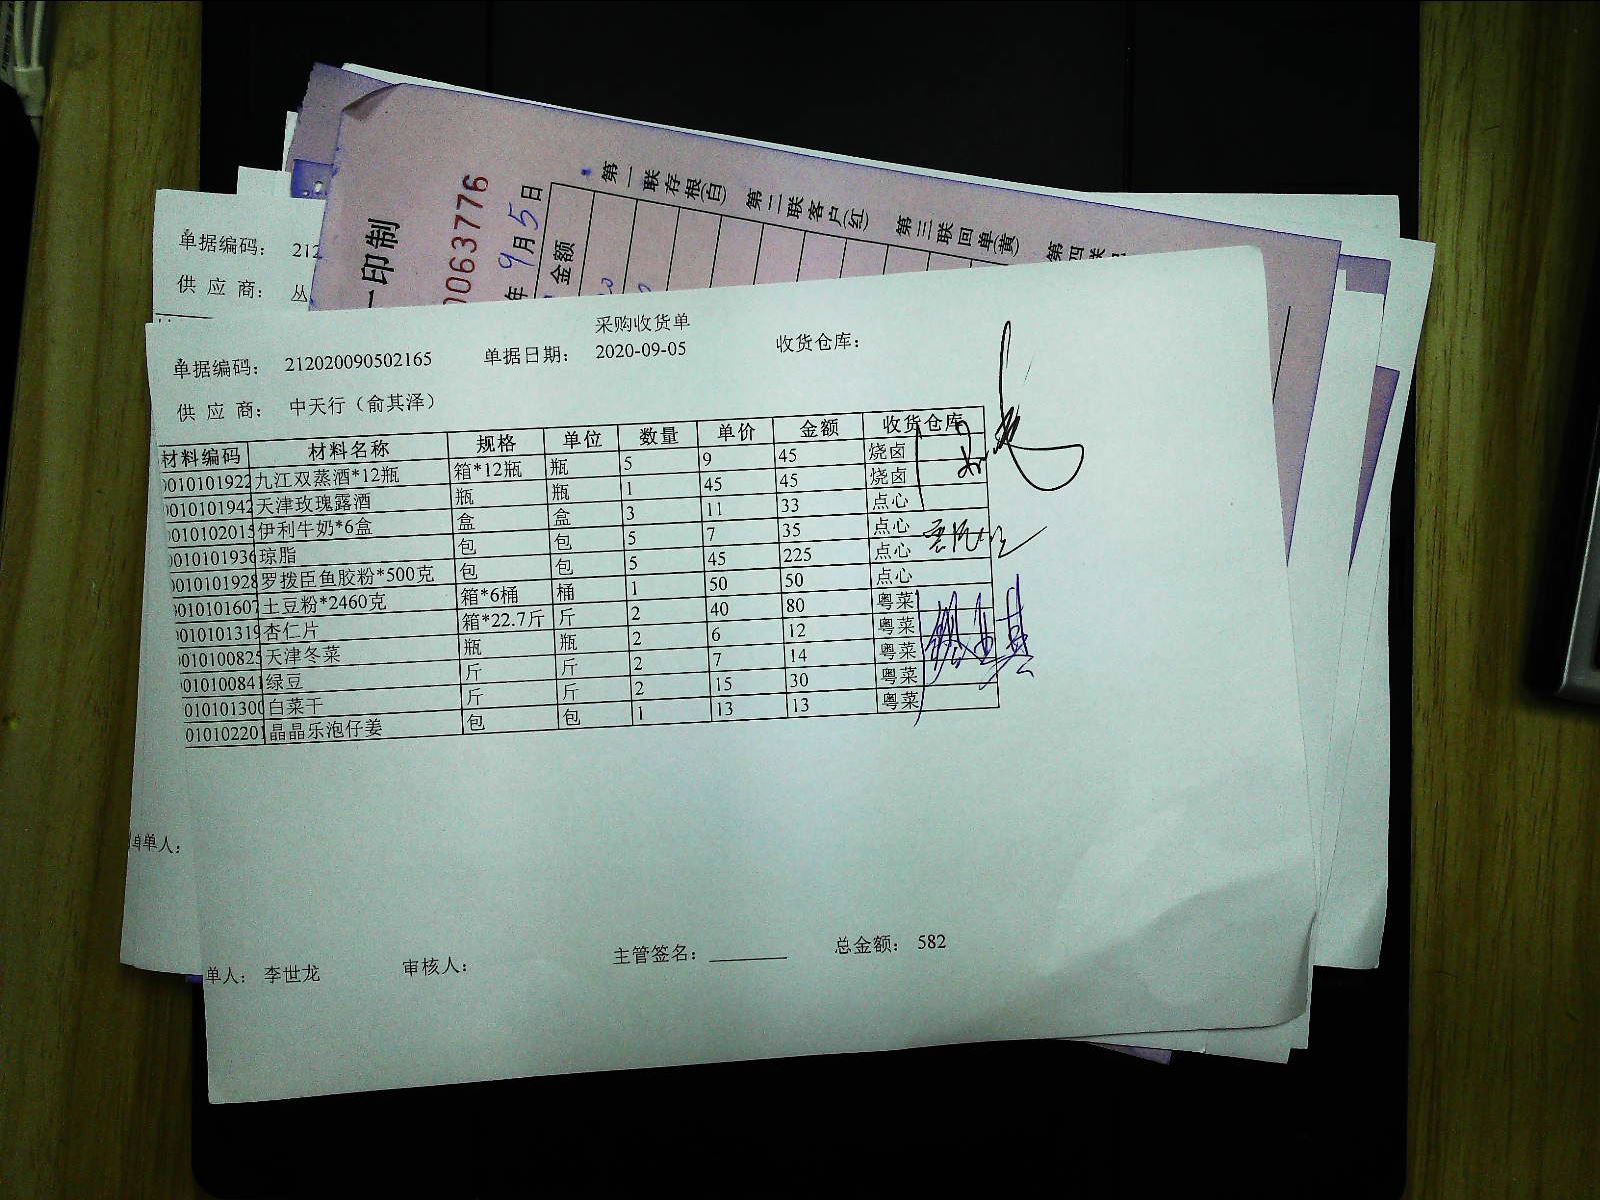 一印制
0063776
年9月5日
金额
第一联存根(白)
第二联客户(红)
第三联回单(黄)
第四联
单据编码: 212
供 应 商: 丛
采购收货单
单据编码: 212020090502165 单据日期: 2020-09-05 收货仓库:
供 应 商: 中天行（俞其泽）
材料编码 材料名称 规格 单位 数量 单价 金额 收货仓库
0010101922 九江双蒸酒*12瓶 箱*12瓶 瓶 5 9 45 烧卤
0010101942 天津玫瑰露酒 瓶 瓶 1 45 45 烧卤
0010102015 伊利牛奶*6盒 盒 盒 3 11 33 点心
0010101936 琼脂 包 包 5 7 35 点心
0010101928 罗拨臣鱼胶粉*500克 包 包 5 45 225 点心
0010101607 土豆粉*2460克 箱*6桶 桶 1 50 50 点心
0010101319 杏仁片 箱*22.7斤 斤 2 40 80 粤菜
0010100825 天津冬菜 瓶 瓶 2 6 12 粤菜
0010100841 绿豆 斤 斤 2 7 14 粤菜
010101300 白菜干 斤 斤 2 15 30 粤菜
010102201 晶晶乐泡仔姜 包 包 1 13 13 粤菜
单人:
单人: 李世龙 审核人: 主管签名: 总金额: 582